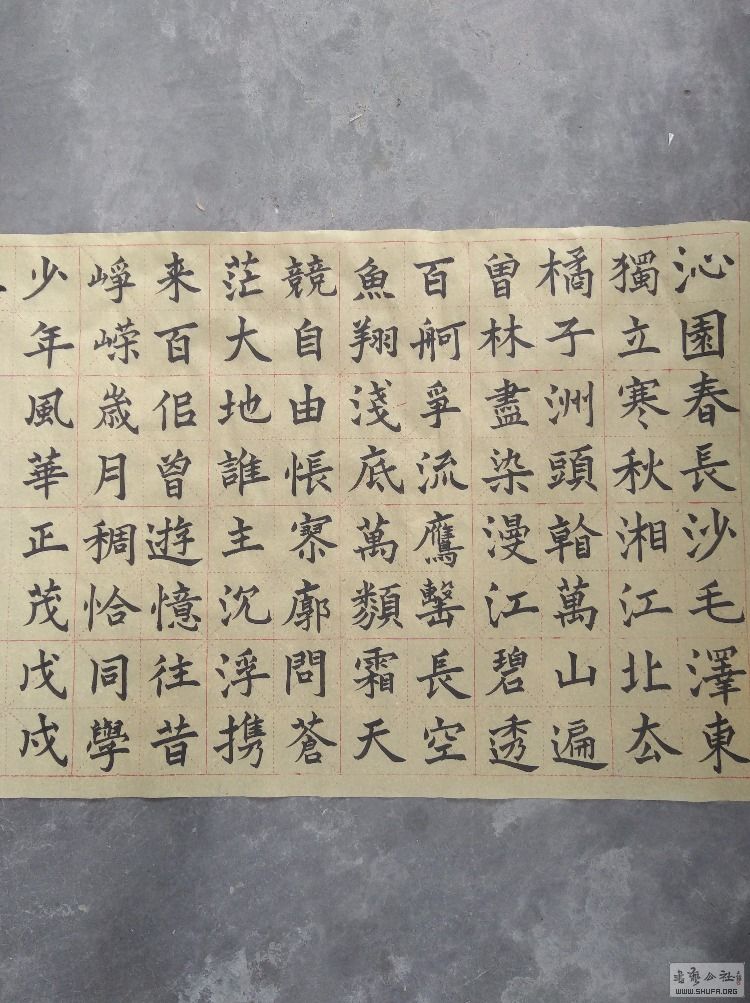 沁園春長沙毛澤東
獨立寒秋湘江北厺
橘子洲頭萬山遍
曾林盡染漫江碧透
百舸爭流鷹擊長空
魚翔淺底萬類霜天
競自由悵寥廓問蒼
茫大地誰主沉浮携
来百侣曾遊憶往昔
崢嶸歲月稠恰同學
少年風華正茂戊戌
WWW.SHUFA.ORG